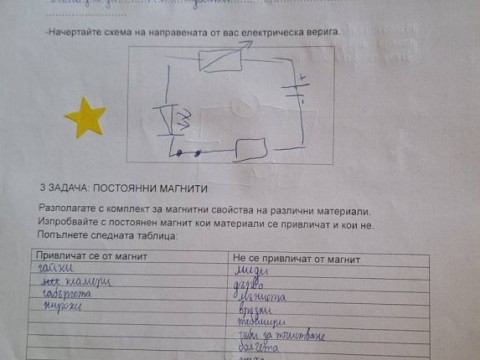 -Начертайте схема на направената от вас електрическа верига.
+
-
3 ЗАДАЧА: ПОСТОЯННИ МАГНИТИ
Разполагате с комплект за магнитни свойства на различни материали.
Изпробвайте с постоянен магнит кои материали се привличат и кои не.
Попълнете следната таблица:
Привличат се от магнит
Не се привличат от магнит
гайки
кламери
габърчета
пирони
миди
дърво
мъниста
връзки
тебешири
гъби за почистване